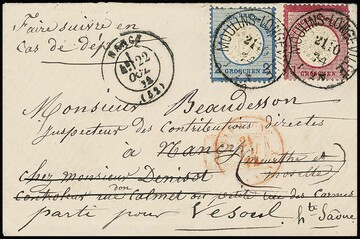 Faire suivre en
Cas de dép
NANCY
22
OCT
74
(52)
MOULINS-LONGEVILLE
21 10
74
GROSCHEN
MOULINS-LONGEVILLE
21 10
74
GROSCHEN
Monsieur Beaudesson
Inspecteur des Contributions directes
à Nancy
Meurthe et
moselle
chez Monsieur Denisot
Controleur rue don Calmet ou petite rue des Carmes
parti pour Vesoul
hte Saône